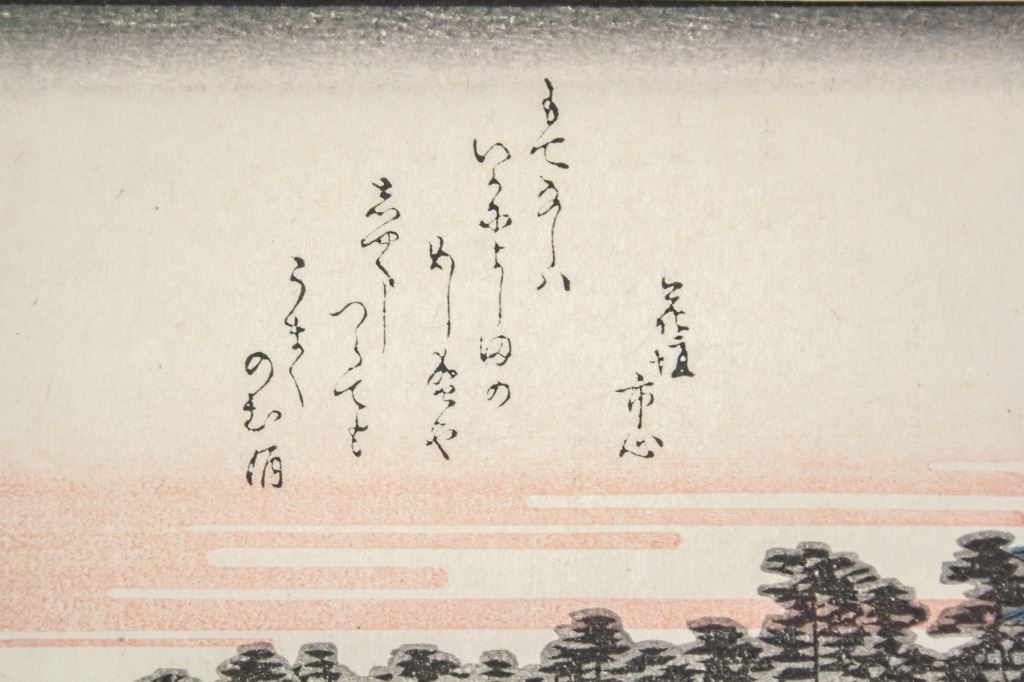 花垣
市心
もてなしハ
いかによし田の
めし盛や
しやくし
つらても
うまく
のむ酒